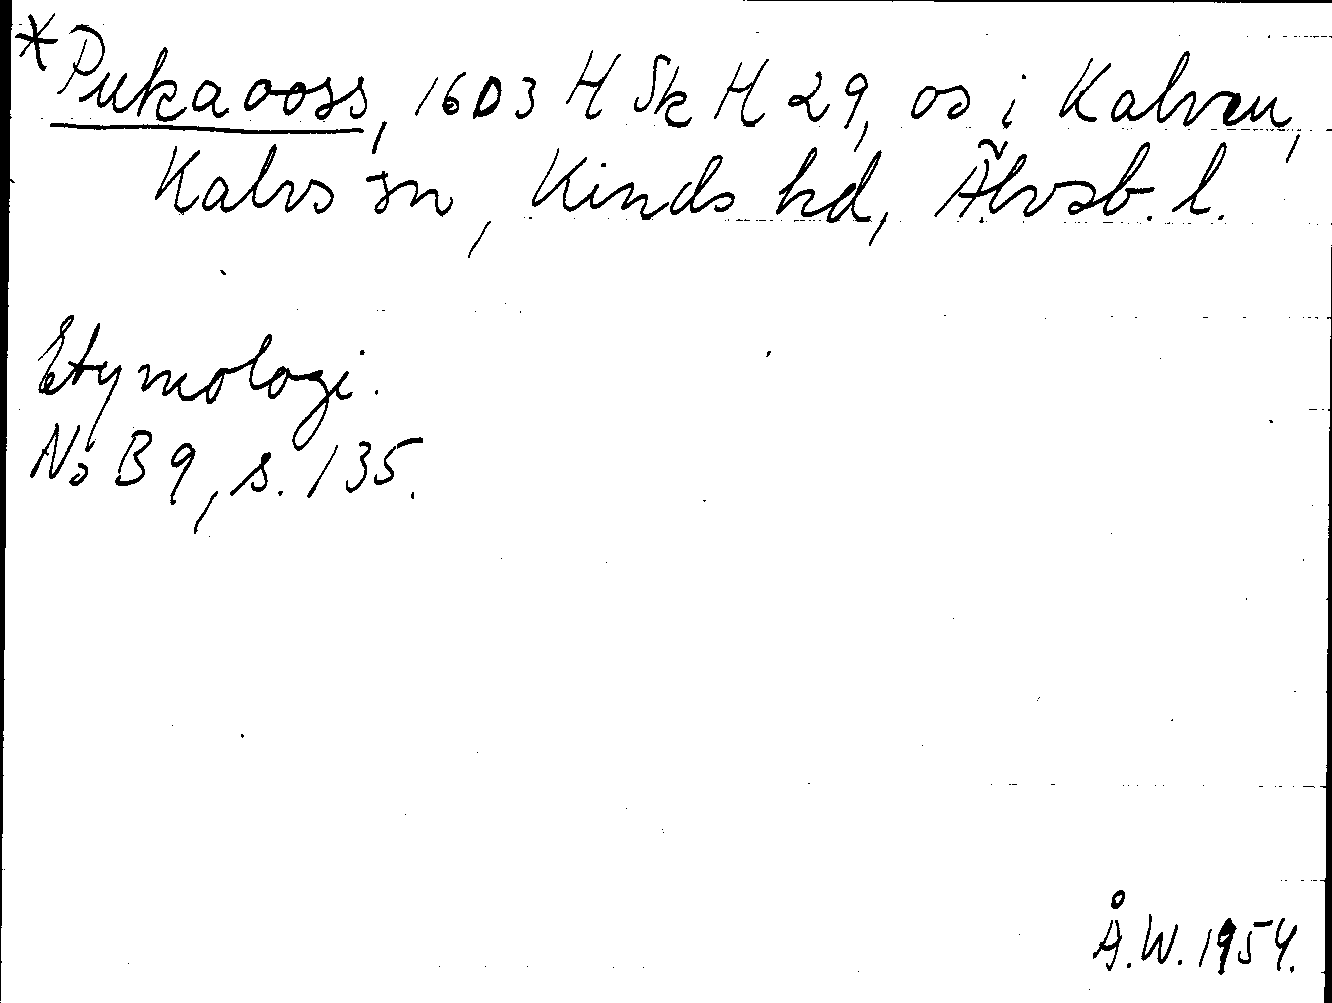 *Pukaooss, 1603 H Sk H 29, os i Kalven,
Kalvs sn, Kinds hd, Älvsb. l.
Etymologi.
NoB 9, s. 135.
Å.W. 1954.